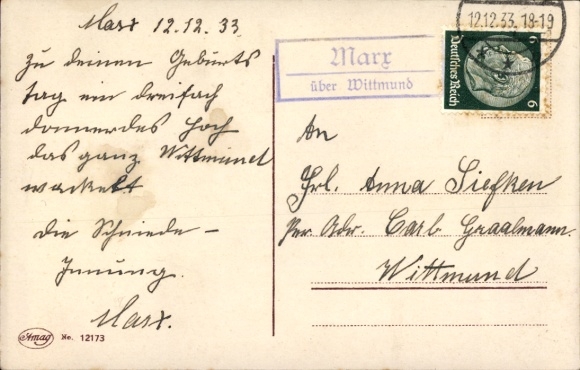 Marx 12.12.33
zu deinen Geburts
tag ein dreifach
donnerdes Hoch
das ganz Wittmund
wackelt
die Schmiede-
Innung.
Marx.
Amag No. 12173
Marx
über Wittmund
12.12.33. 18-19
Deutsches Reich
6 6
An
Frl. Anna Siefken
Per Adr. Carb Graalmann.
Wittmund